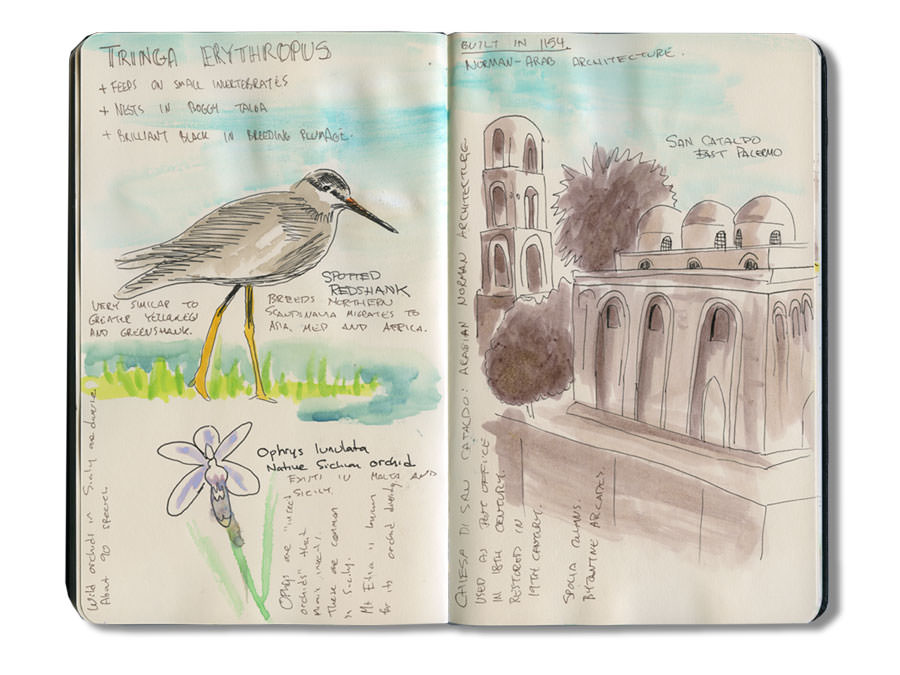 TRINGA ERYTHROPUS
+ FEEDS ON SMALL INVERTEBRATES
+ NESTS IN BOGGY TAIGA
+ BRILLIANT BLACK IN BREEDING PLUMAGE.
SPOTTED
REDSHANK
VERY SIMILAR TO
GREATER YELLOWLEG
AND GREENSHANK.
BREEDS NORTHERN
SCANDINAVIA MIGRATES TO
ASIA, MED AND AFRICA.
Wild orchids in Sicily are diverse
About 90 species
Ophrys lunulata
Native Sicilian orchid
EXISTS IN MALTA AND
SICILY.
Ophrys are "insect
orchids" that
mimic insects.
These are common
in Sicily.
Mt Etna is known
for its orchid diversity
BUILT IN 1154.
NORMAN-ARAB ARCHITECTURE.
SAN CATALDO
EAST PALERMO
CHIESA DI SAN CATALDO: ARABIAN NORMAN ARCHITECTURE
USED AS POST OFFICE
IN 18TH CENTURY.
RESTORED IN
19TH CENTURY.
SPOLIA COLUMNS.
BYZANTINE ARCADES.